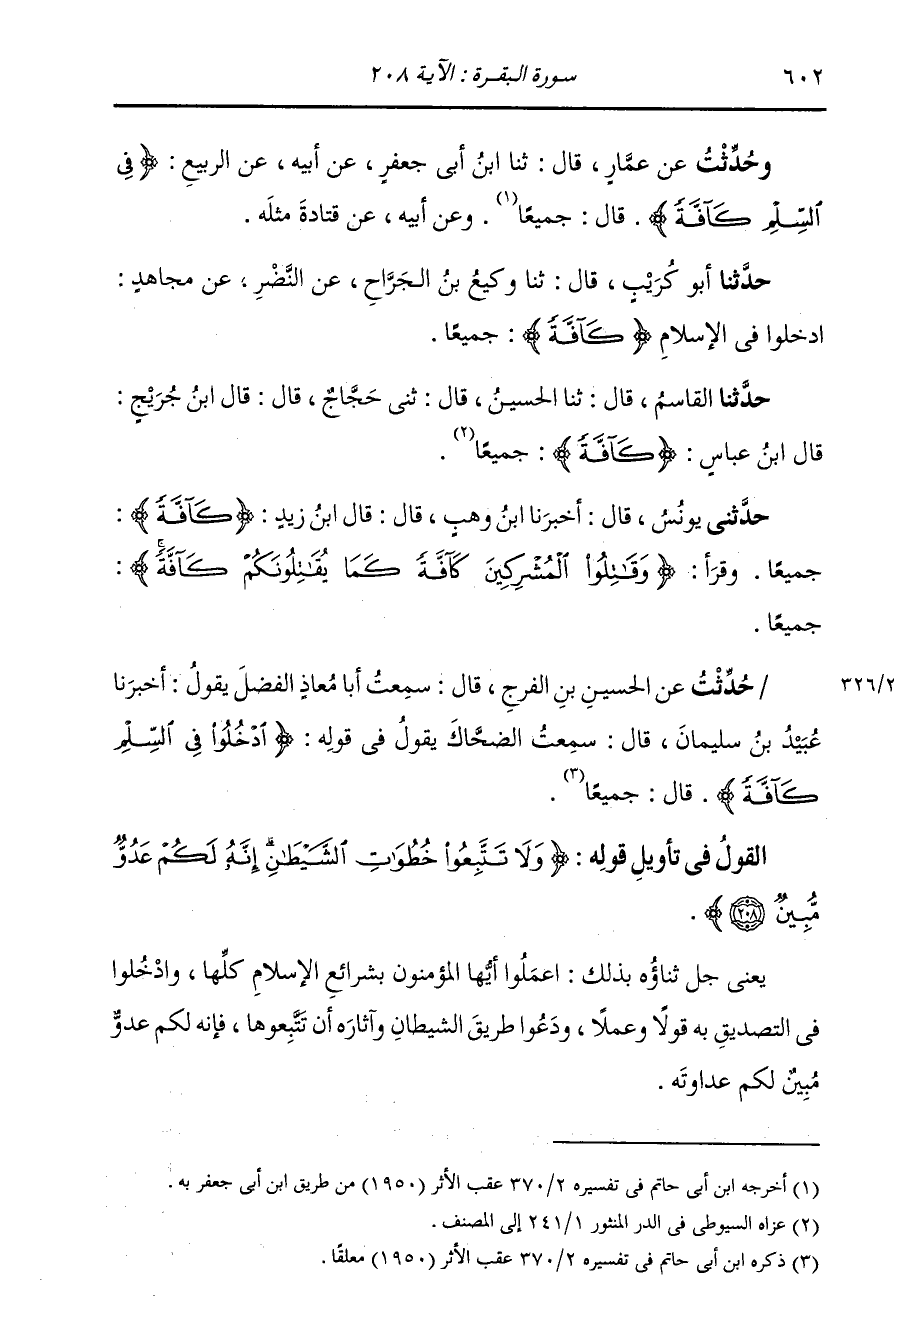 ٦٠٢ سورة البقرة : الآية ٢٠٨
وحُدِّثْتُ عن عمَّارٍ ، قال : ثنا ابنُ أبى جعفرٍ ، عن أبيه ، عن الربيعِ : ﴿ فِى
ٱلسِّلْمِ كَآفَّةً ﴾ . قال : جميعًا(١) . وعن أبيه ، عن قتادةَ مثلَه .
حدَّثنا أبو كُرَيْبٍ ، قال : ثنا وكيعُ بنُ الجَرَّاحِ ، عن النَّضْرِ ، عن مجاهدٍ :
ادخلوا فى الإسلامِ ﴿ كَآفَّةً ﴾ : جميعًا .
حدَّثنا القاسمُ ، قال : ثنا الحسينُ ، قال : ثنى حَجَّاجٌ ، قال : قال ابنُ جُرَيْجٍ :
قال ابنُ عباسٍ : ﴿ كَآفَّةً ﴾ : جميعًا(٢) .
حدَّثنى يونُسُ ، قال : أخبرَنا ابنُ وهبٍ ، قال : قال ابنُ زيدٍ : ﴿ كَآفَّةً ﴾ :
جميعًا . وقرَأ : ﴿ وَقَٰتِلُوا۟ ٱلْمُشْرِكِينَ كَآفَّةً كَمَا يُقَٰتِلُونَكُمْ كَآفَّةًۚ ﴾ :
جميعًا .
٣٢٦/٢ / حُدِّثْتُ عن الحسينِ بنِ الفرجِ ، قال : سمِعتُ أبا مُعاذٍ الفضلَ يقولُ : أخبرَنا
عُبَيْدُ بنُ سليمانَ ، قال : سمِعتُ الضحَّاكَ يقولُ فى قولِه : ﴿ ٱدْخُلُوا۟ فِى ٱلسِّلْمِ
كَآفَّةً ﴾ . قال : جميعًا(٣) .
القولُ فى تأويلِ قولِه : ﴿ وَلَا تَتَّبِعُوا۟ خُطُوَٰتِ ٱلشَّيْطَٰنِۚ إِنَّهُۥ لَكُمْ عَدُوٌّ
مُّبِينٌ ٢٠٨ ﴾ .
يعنى جل ثناؤُه بذلك : اعمَلُوا أيُّها المؤمنون بشرائعِ الإسلامِ كلِّها ، وادْخُلوا
فى التصديقِ به قولًا وعملًا ، ودَعُوا طريقَ الشيطانِ وآثارَه أن تَتَّبِعوها ، فإنه لكم عدوٌّ
مُبِينٌ لكم عداوتَه .
(١) أخرجه ابن أبى حاتم فى تفسيره ٣٧٠/٢ عقب الأثر (١٩٥٠) من طريق ابن أبى جعفر به .
(٢) عزاه السيوطى فى الدر المنثور ٢٤١/١ إلى المصنف .
(٣) ذكره ابن أبى حاتم فى تفسيره ٣٧٠/٢ عقب الأثر (١٩٥٠) معلقًا .